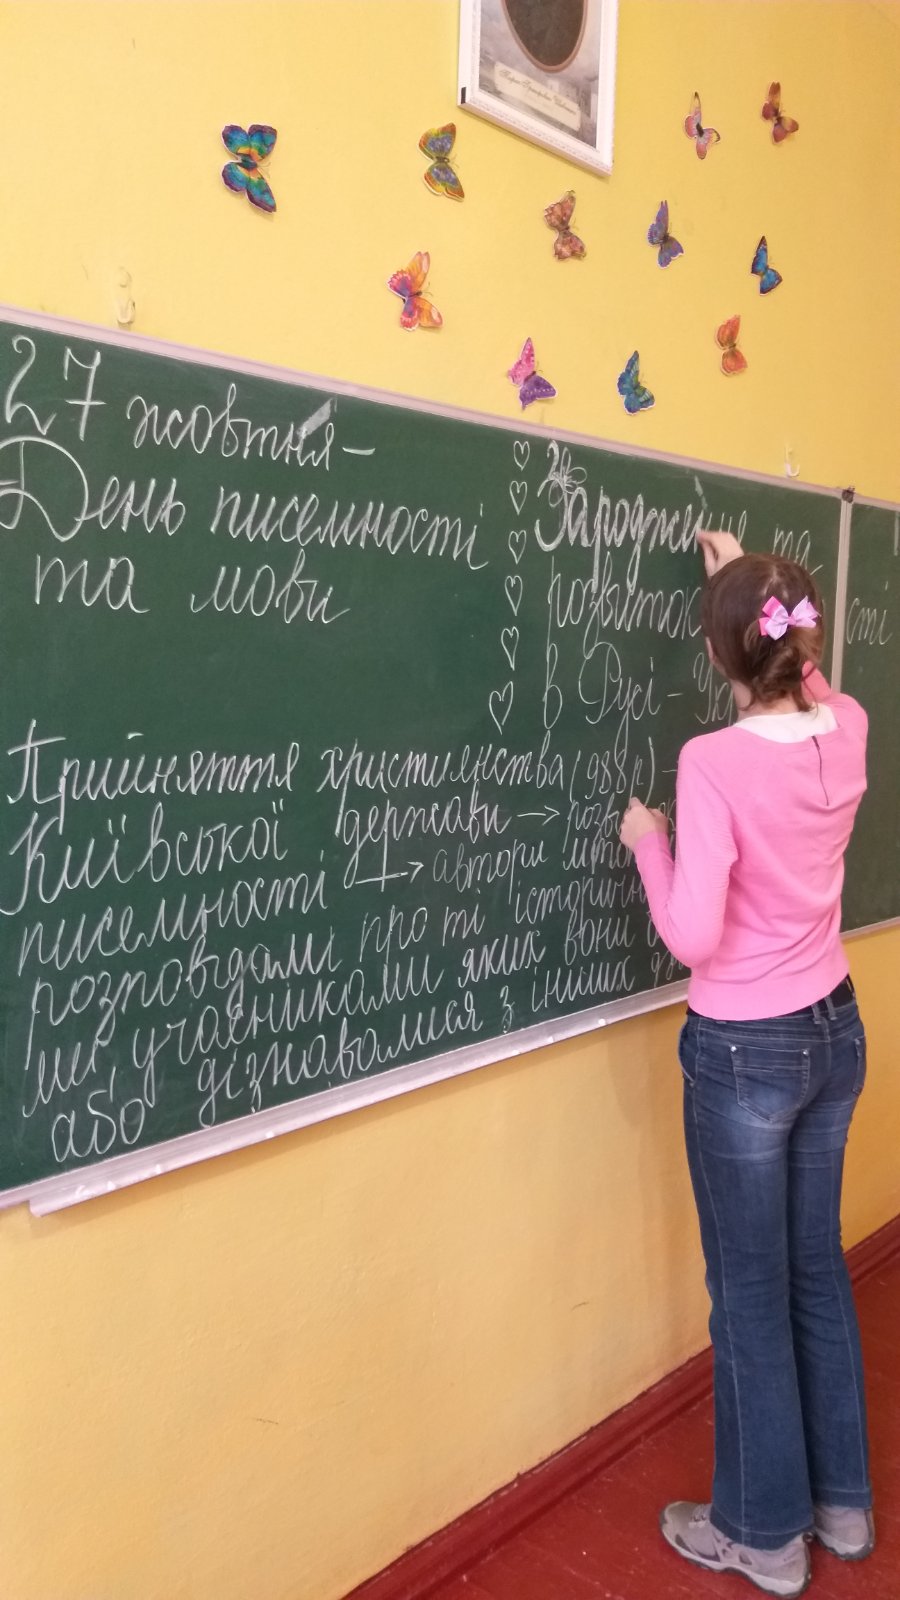 Тарас Григорович Шевченко
27 жовтня –
День писемності
та мови
Зародження та
розвиток
сті
в Русі – Укр
Прийняття християнства (988р) –
Київської держави → розви
писемності → автори
розповідали про ті історичн
ми учасниками яких вони б
або дізнавалися з інших дж